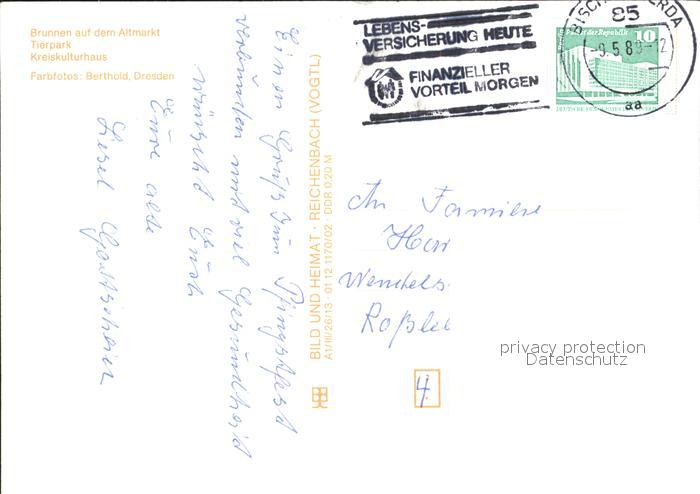 Brunnen auf dem Altmarkt
Tierpark
Kreiskulturhaus
Farbfotos: Berthold, Dresden
Einen Gruß zum Pfingstfest
verbunden mit viel Gesundheit
wünscht Euch
Eure alte
Liesel
BILD UND HEIMAT · REICHENBACH (VOGTL)
A1/III/26/13 · 01 12 1170/02 · DDR 0,20 M
LEBENS-
VERSICHERUNG HEUTE
FINANZIELLER
VORTEIL MORGEN
85
-9.5.89-12
aa
10
An Familie
Wenchels
4.
privacy protection
Datenschutz